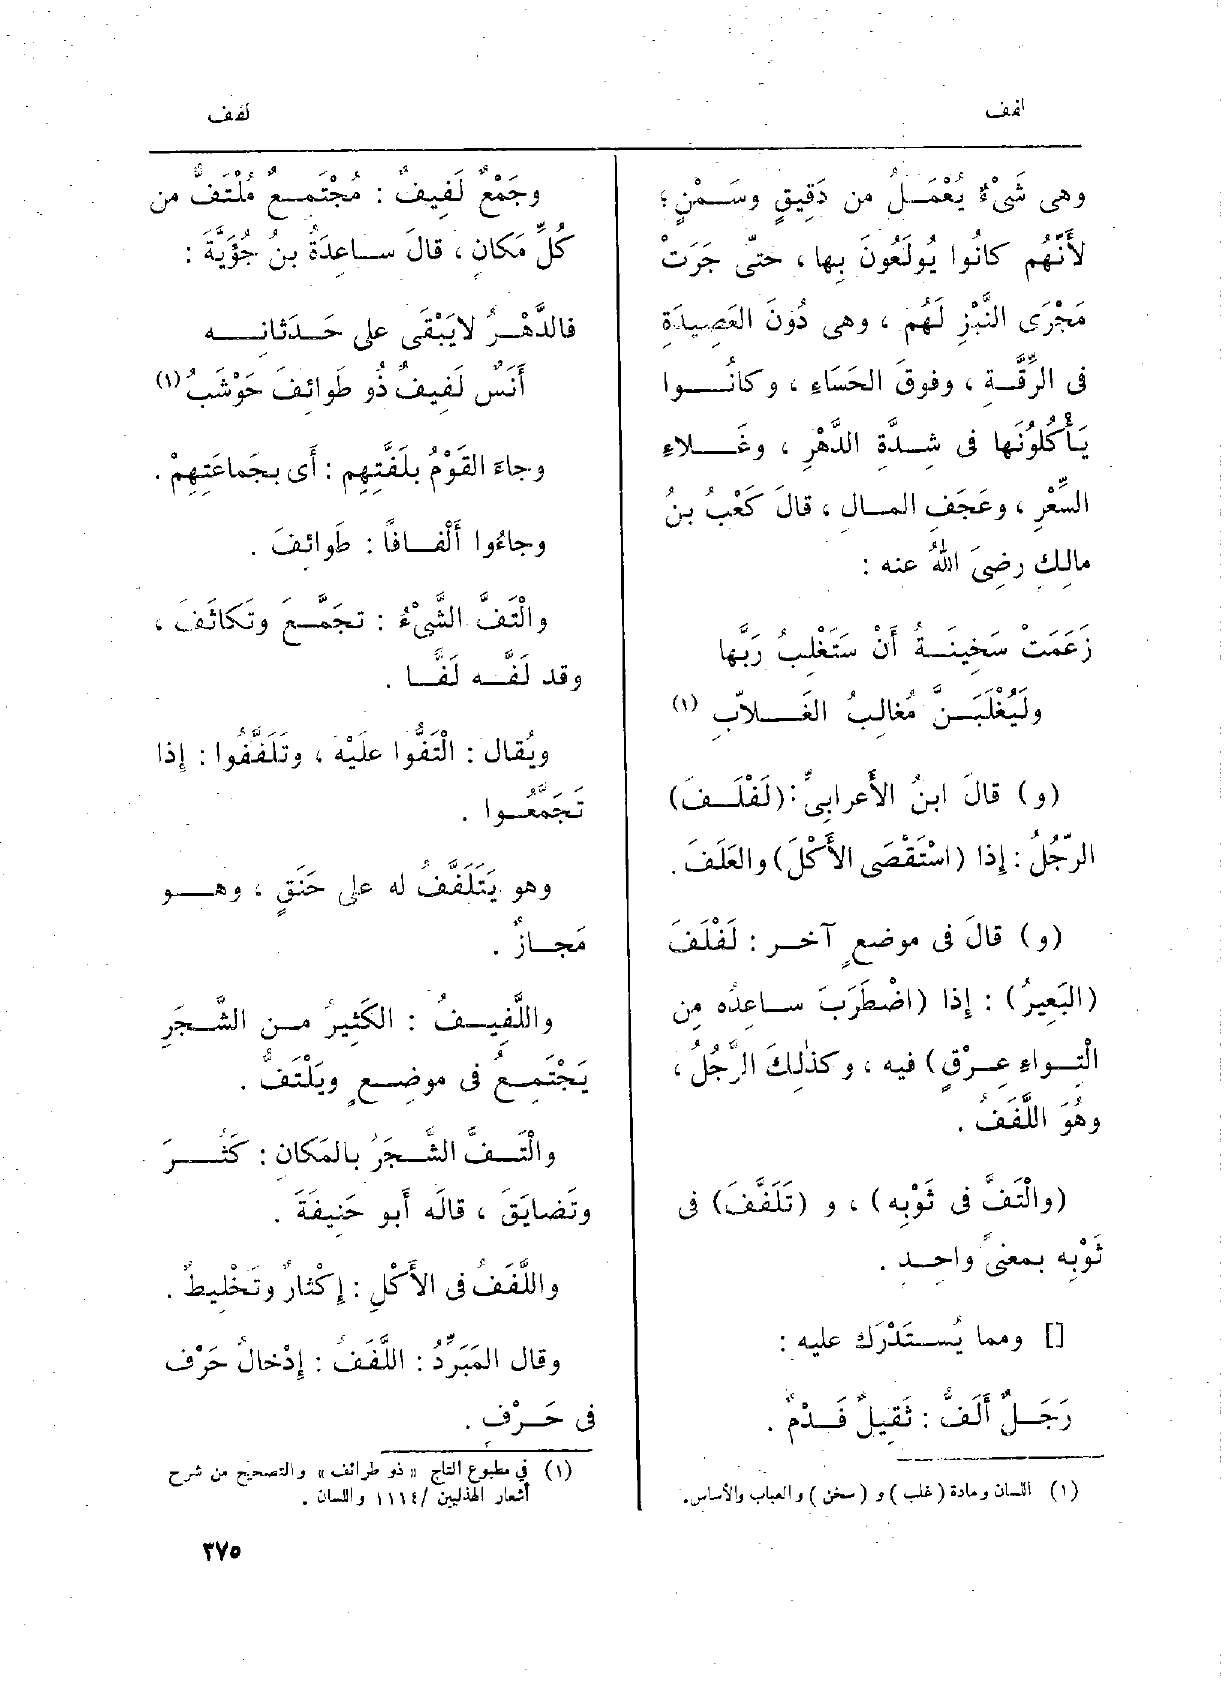 لفف
لفف
وهى شَىْءٌ يُعْمَـلُ من دَقِيقٍ وسَـمْنٍ ؛
لأَنَّهُم كانُوا يُولَعُونَ بِها ، حتّى جَرَتْ
مَجْرَى النَّبْزِ لَهُم ، وهى دُونَ العَصِيدَةِ
فى الرِّقَّـةِ ، وفوقَ الحَسَاءِ ، وكانُـــوا
يَأْكُلُونَها فى شِـدَّةِ الدَّهْرِ ، وغَـــلاءِ
السِّعْرِ ، وعَجَفِ المـالِ ، قالَ كَعْبُ بنُ
مالِكٍ رضِىَ اللهُ عنه :
زَعَمَتْ سَخِينَـةُ أَنْ سَتَغْلِبُ رَبَّها
ولَيُغْلَبَـنَّ مُغالِبُ الغَـــلاّبِ (١)
(و) قالَ ابنُ الأَعرابىِّ : (لَفْلَـفَ)
الرّجُلُ : إِذا (اسْتَقْصَى الأَكْلَ) والعَلَفَ .
(و) قالَ فى موضعٍ آخـر : لَفْلَفَ
(البَعِيرُ) : إِذا (اضْطَرَبَ ساعِدُه مِن
الْتِـواءِ عِـرْقٍ) فيه ، وكذٰلِكَ الرَّجُلُ ،
وهُوَ اللَّفَفُ .
(والْتَفَّ فى ثَوْبِه) ، و (تَلَفَّفَ) فى
ثَوْبِه بمعنىً واحِـدِ .
[] ومما يُسـتَدْرَك عليه :
رَجَـلٌ أَلَفُّ : ثَقِيلٌ فَـدْمٌ .
(١) اللسان ومادة (غلب) و (سخن) والعباب والأساس.
وجَمْعٌ لَفِيفٌ : مُجْتَمِـعٌ مُلْتَفٌّ من
كُلِّ مَكانٍ ، قالَ سـاعِدَةُ بنُ جُؤَيَّةَ :
فالدَّهْـرُ لايَبْقَى على حَـدَثانِــه
أَنَسٌ لَفِيفٌ ذُو طَوائِفَ حَوْشَبُ (١)
وجاءَ القَوْمُ بِلَفَّتِهِم : أَى بجَماعَتِهِمْ .
وجاءُوا أَلْفـافًا : طَوائِفَ .
والْتَفَّ الشَّىْءُ : تجَمَّـعَ وتَكاثَفَ ،
وقد لَفَّـه لَفًّـا .
ويُقال : الْتَفُّوا علَيْه ، وتَلَفَّفُوا : إِذا
تَجَمَّعُـوا .
وهو يَتَلَفَّفُ له على حَنَقٍ ، وهـــو
مَجـازٌ .
واللَّفِيـفُ : الكَثِيرُ مـن الشَّـجَرِ
يَجْتَمِـعُ فى موضـعٍ ويَلْتَفُّ .
والْتَـفَّ الشَّـجَرُ بالمَكانِ : كَثُـــرَ
وتَضايَقَ ، قالَه أَبو حَنِيفَةَ .
واللَّفَفُ فى الأَكْلِ : إِكْثارٌ وتَخْلِيطٌ .
وقال المَبَرِّدُ : اللَّفَفُ : إِدْخالُ حَرْفٍ
فى حَـرْفٍ .
(١) في مطبوع التاج « ذو طرائف » والتصحيح من شرح
أشعار الهذليين /١١١٤ واللسان .
٣٧٥